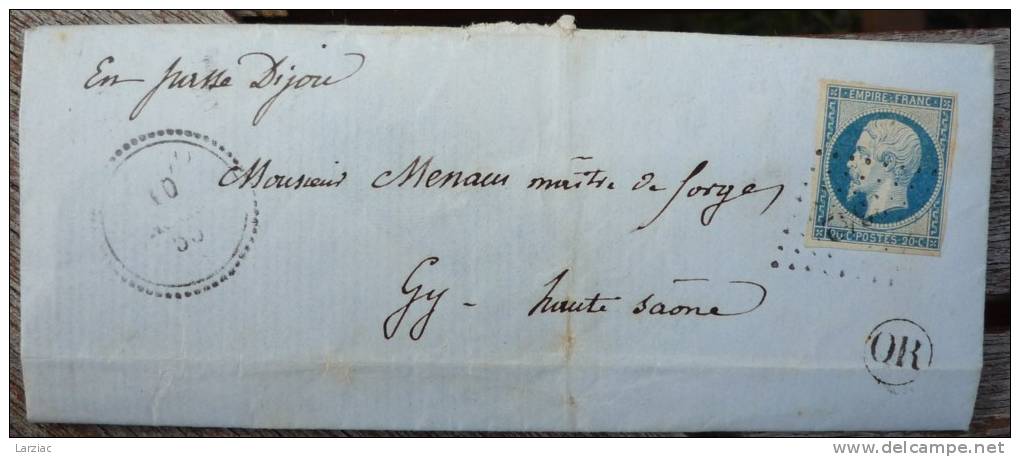 En passe Dijon
EMPIRE FRANC
Monsieur Menans maître de forges
20·C·POSTES·20·C
Gy - haute saône
OR
Larziac
www.delcampe.net